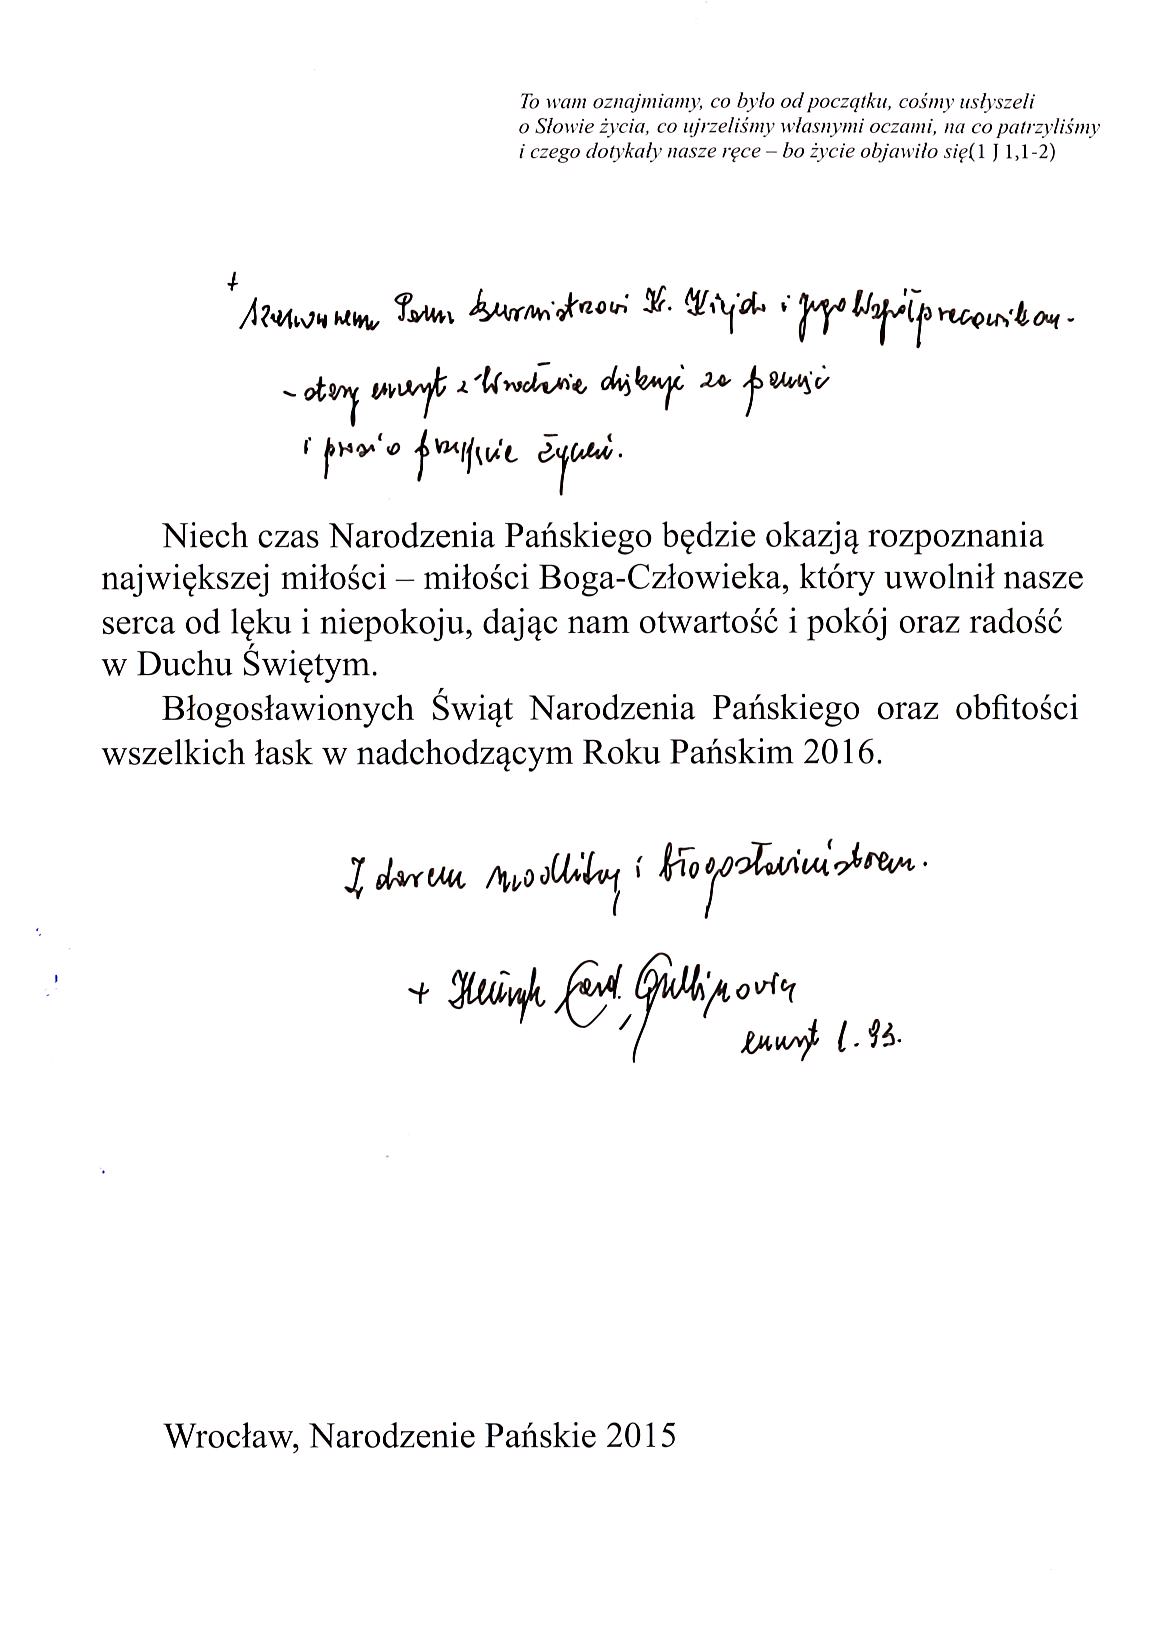 To wam oznajmiamy, co było od początku, cośmy usłyszeli
o Słowie życia, co ujrzeliśmy własnymi oczami, na co patrzyliśmy
i czego dotykały nasze ręce – bo życie objawiło się(1 J 1,1-2)
+
Szanownemu Panu Burmistrzowi i Jego Współpracownikom -
- stary emeryt z Wrocławia dziękuje za pamięć
i prosi o przyjęcie życzeń.
Niech czas Narodzenia Pańskiego będzie okazją rozpoznania
największej miłości – miłości Boga-Człowieka, który uwolnił nasze
serca od lęku i niepokoju, dając nam otwartość i pokój oraz radość
w Duchu Świętym.
Błogosławionych Świąt Narodzenia Pańskiego oraz obfitości
wszelkich łask w nadchodzącym Roku Pańskim 2016.
Z darem modlitwy i błogosławieństwem.
+ Henryk Card. Gulbinowicz
emeryt l. 93.
Wrocław, Narodzenie Pańskie 2015